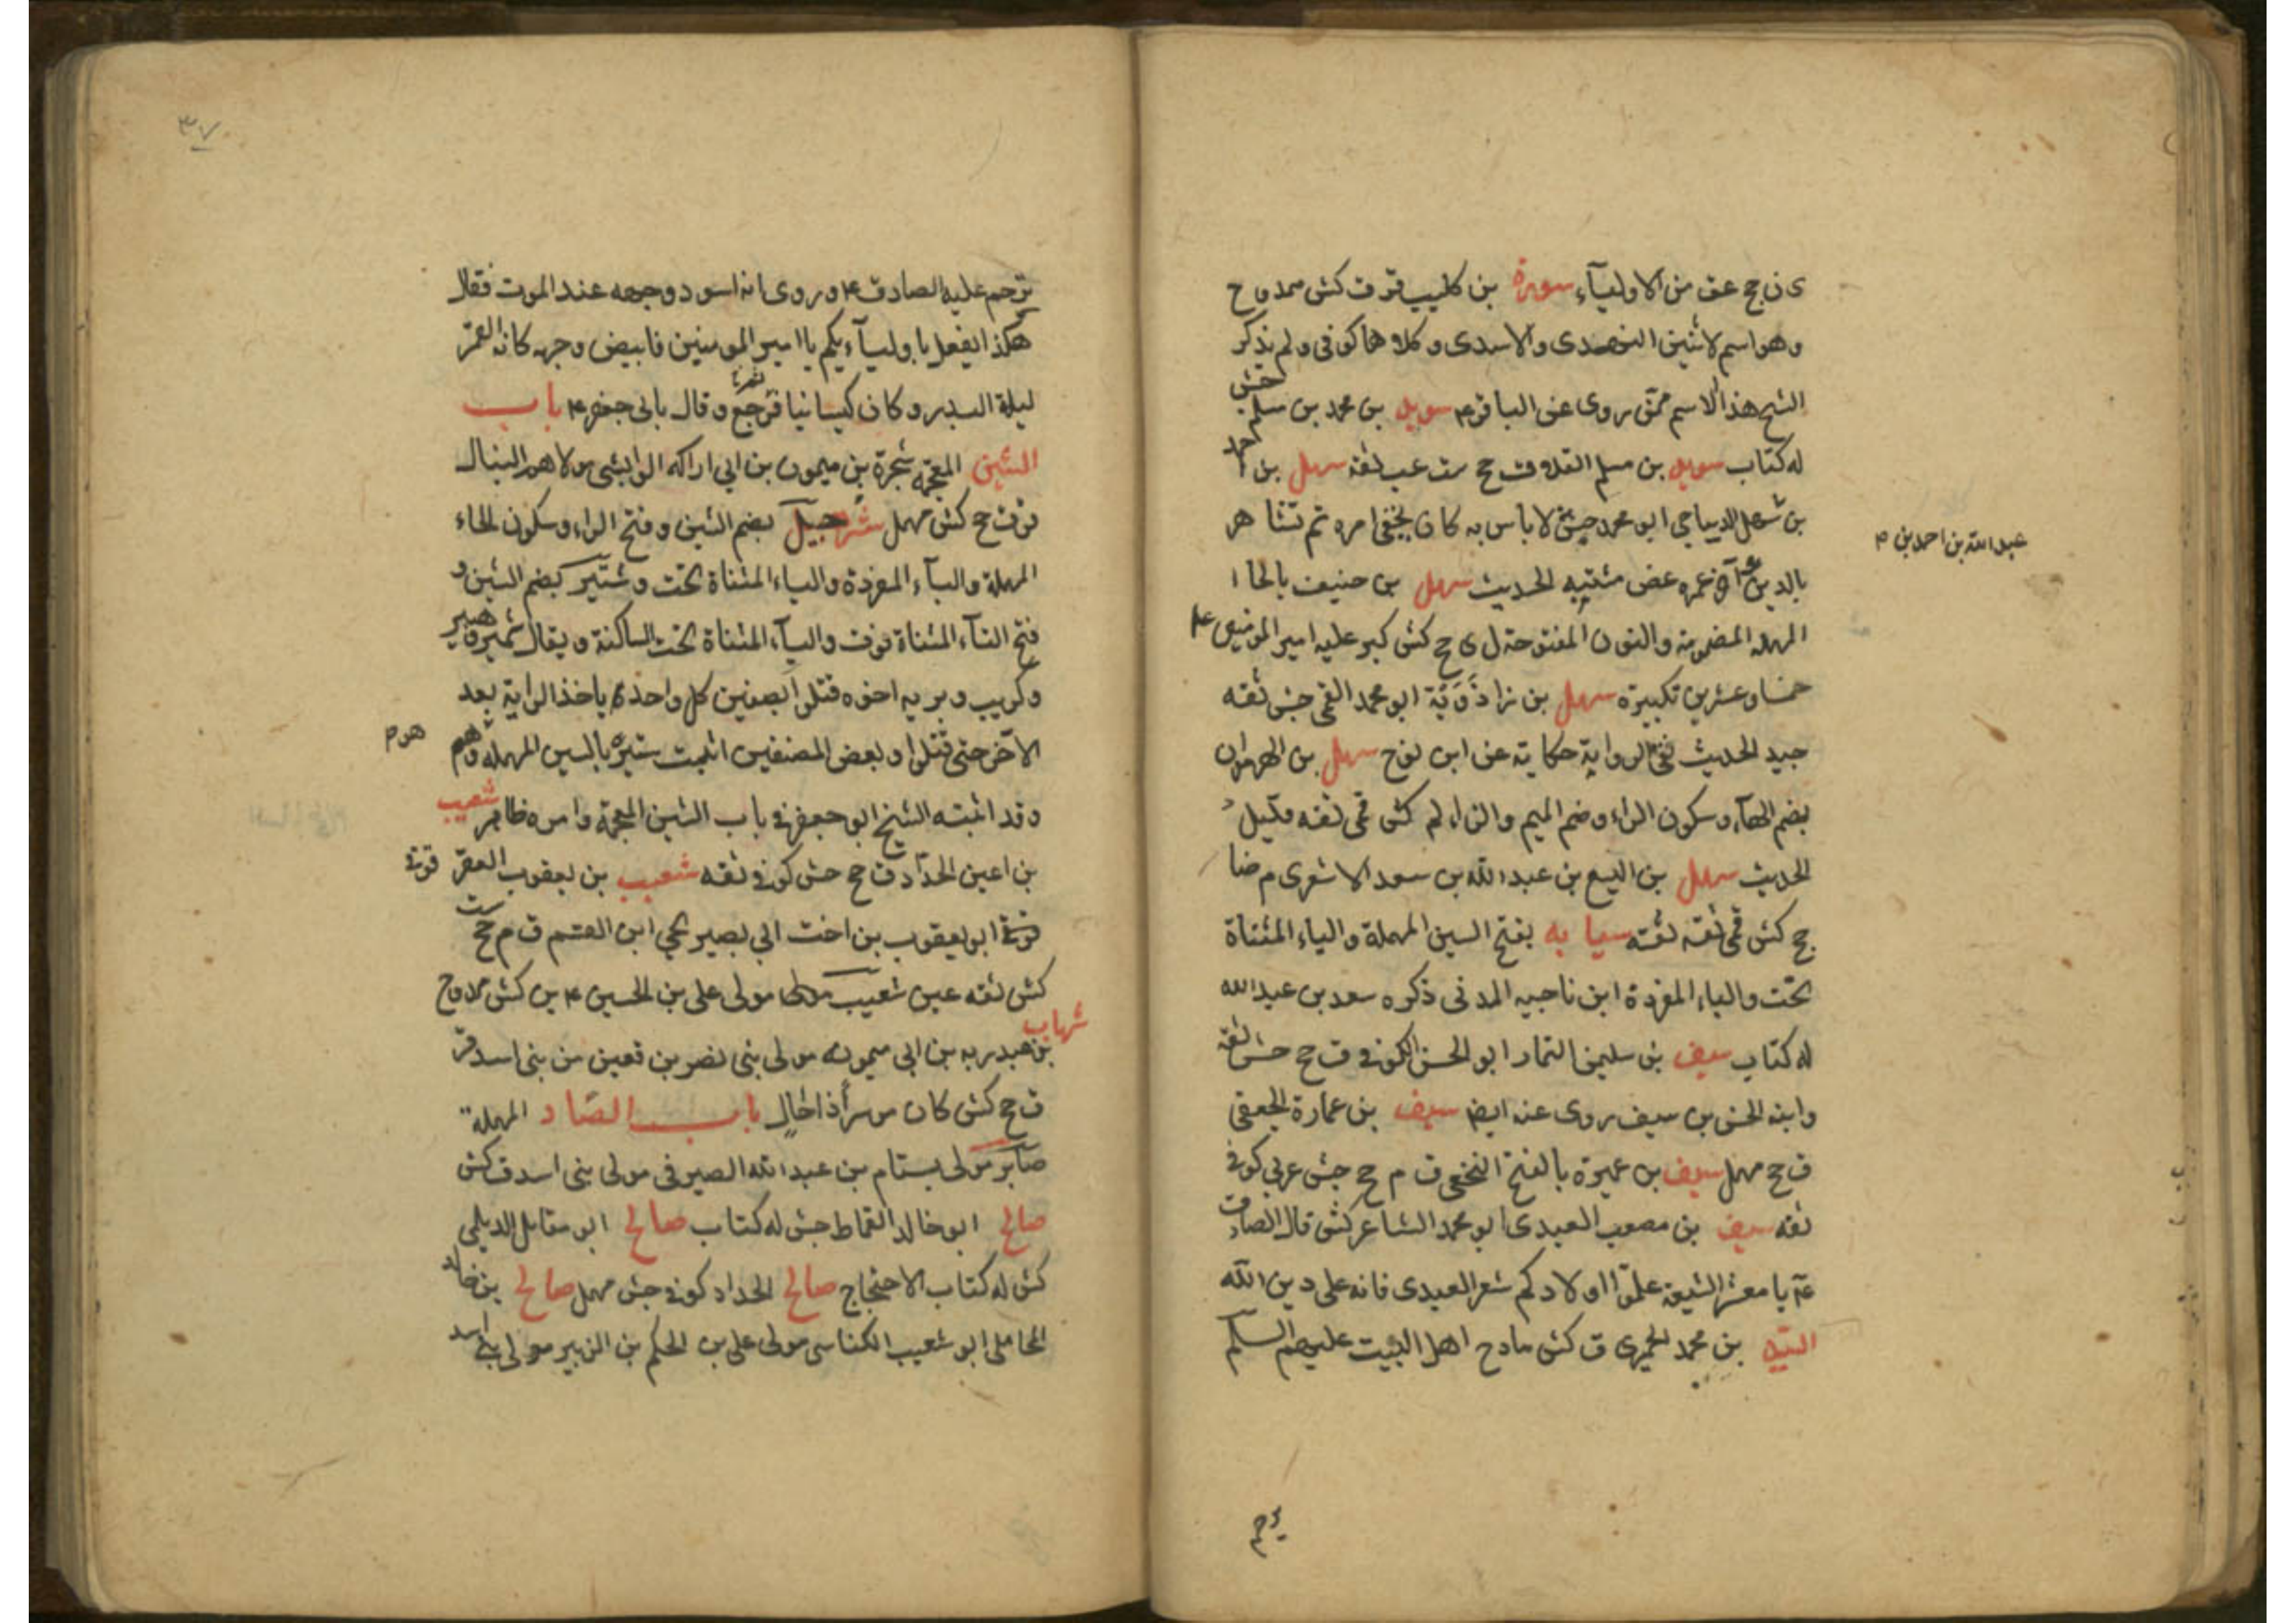 ى ن جح عق من الاولياء سورة بن كليب قر ق كش ممدوح
وهو اسم لاثنين النهدى والاسدى وكلاهما كوفى ولم يذكر
الشيخ هذا الاسم ممن روى عن الباقر ع سويد بن محمد بن مسلم جش
له كتاب سويد بن مسلم القلا ق جح ست عب ثقه سهل بن احمد
عبد الله بن احمد بن م
بن سهل الديباجى ابو محمد جش لا باس به كان يخفى امره ثم تشاهر
بالدين آخر عمره غض مشتبه الحديث سهل بن حنيف بالحا ا
المهمله المضمومة والنون المفتوحة ل ى جح كش كبر عليه امير المومنين ع
خمسا وعشرين تكبيرة سهل بن زاذويه ابو محمد القمى جش ثقه
جيد الحديث نقى الرواية حكاية عن ابن نوح سهل بن الهرمزان
بضم الهاء وسكون الراء وضم الميم والزاء لم كش قمى ثقه قليل
الحديث سهل بن اليسع بن عبد الله بن سعد الاشعرى م ضا
جح كش قمى ثقه ثقته سيابه بفتح السين المهملة والياء المثناة
تحت والباء المفردة ابن ناجيه المدنى ذكره سعد بن عبد الله
له كتاب سيف بن سليمن التمار ابو الحسن الكوفى ق جح جش ثقة
وابنه الحسن بن سيف روى عنه ايضا سيف بن عمارة الجعفى
ق جح مهمل سيف بن عميرة بالفتح النخعى ق م جح جش عربى كوفى
ثقه سيف بن مصعب العبدى ابو محمد الشاعر كش قال الصادق
ع يا معشر الشيعة علموا اولادكم شعر العبدى فانه على دين الله
السيد بن محمد الحميرى ق كش مادح اهل البيت عليهم السلم
ترحم
٣٧
ترحم عليه الصادق ع وروى انه اسود وجهه عند الموت فقال
هكذا يفعل باوليآءيكم يا امير المومنين فابيض وجهه كانه القمر
ليلة البدر وكان كيسانيا فرجع وقال بابى جعفر ع باب
الشين المعجمة شجرة بن ميمون بن ابى اراكه الوابشى مولاهم النبال
قر ق جح كش مهمل شرحبيل بضم الشين وفتح الراء وسكون الحاء
المهملة والبآء المفردة والياء المثناة تحت وشتير كبضم الشين و
فتح التآء المثناة فوق واليآء المثناة تحت الساكنة ويقال شمير وهبير
وكريب وبريه اخوه قتلوا بصفين كل واحد ياخذ الراية بعد
الآخر حتى قتلوا وبعض المصنفين اثبت ستيره بالسين المهمله وهم
هو م
وقد اثبته الشيخ ابو جعفر فى باب الشين المعجمة وامره ظاهر شعيب
بن اعين الحداد ق جح جش كوفى ثقه شعيب بن يعقوب العقر قوفى
قوفى ابو يعقوب بن اخت ابى بصير يحيى ابن القسم ق م جح ست
كش ثقه عين شعيب مولى على بن الحسين ع ين كش ممدوح
شهاب بن عبد ربه بن ابى ميمونه مولى بنى نصر بن قعين من بنى اسد قر
ق جح كش كان موسرا ذا حال باب الصاد المهملة
صابر مولى بسام بن عبد الله الصيرفى مولى بنى اسد ق كش
صالح ابو خالد القماط جش له كتاب صالح ابو مقاتل الديلمى
كش له كتاب الاحتجاج صالح الحداد كوفى جش مهمل صالح بن خالد
المحاملى ابو شعيب الكناسى مولى على بن الحكم بن الزبير مولى بنى اسد